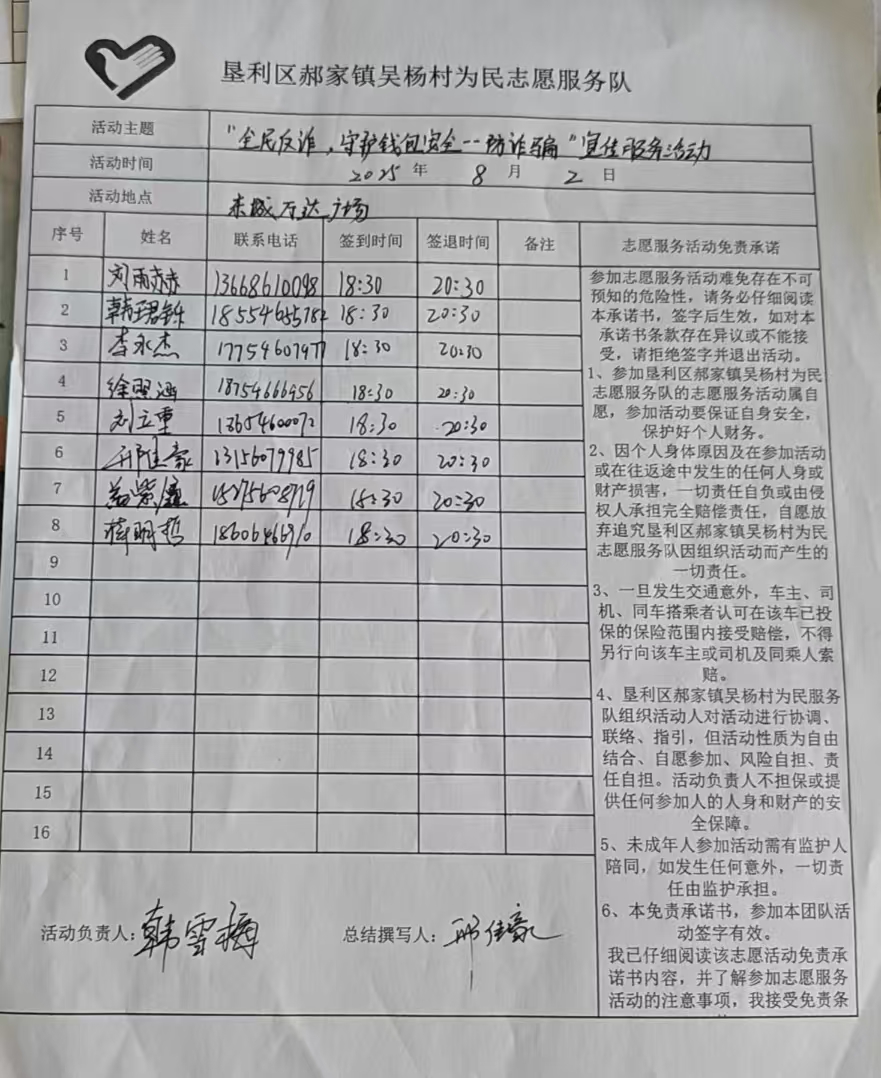 垦利区郝家镇吴杨村为民志愿服务队
活动主题 "全民反诈，守护钱包安全--防诈骗"宣传服务活动
活动时间 2025 年 8 月 2 日
活动地点 东城万达广场
序号 姓名 联系电话 签到时间 签退时间 备注 志愿服务活动免责承诺
1 刘雨赤赤 13668610098 18:30 20:30
2 韩珺铄 18554655782 18:30 20:30
3 李永杰 17754607977 18:30 20:30
4 徐照涵 18754666956 18:30 20:30
5 刘立重 13654600072 18:30 20:30
6 邢佳豪 13156079985 18:30 20:30
7 15275608719 18:30 20:30
8 薛明哲 18606466910 18:30 20:30
9
10
11
12
13
14
15
16
参加志愿服务活动难免存在不可
预知的危险性，请务必仔细阅读
本承诺书，签字后生效，如对本
承诺书条款存在异议或不能接
受，请拒绝签字并退出活动。
1、参加垦利区郝家镇吴杨村为民
志愿服务队的志愿服务活动属自
愿，参加活动要保证自身安全，
保护好个人财务。
2、因个人身体原因及在参加活动
或在往返途中发生的任何人身或
财产损害，一切责任自负或由侵
权人承担完全赔偿责任，自愿放
弃追究垦利区郝家镇吴杨村为民
志愿服务队因组织活动而产生的
一切责任。
3、一旦发生交通意外，车主、司
机、同车搭乘者认可在该车已投
保的保险范围内接受赔偿，不得
另行向该车主或司机及同乘人索
赔。
4、垦利区郝家镇吴杨村为民服务
队组织活动人对活动进行协调、
联络、指引，但活动性质为自由
结合、自愿参加、风险自担、责
任自担。活动负责人不担保或提
供任何参加人的人身和财产的安
全保障。
5、未成年人参加活动需有监护人
陪同，如发生任何意外，一切责
任由监护承担。
6、本免责承诺书，参加本团队活
动签字有效。
我已仔细阅读该志愿活动免责承
诺书内容，并了解参加志愿服务
活动的注意事项，我接受免责条
活动负责人：韩雪梅 总结撰写人：邢佳豪